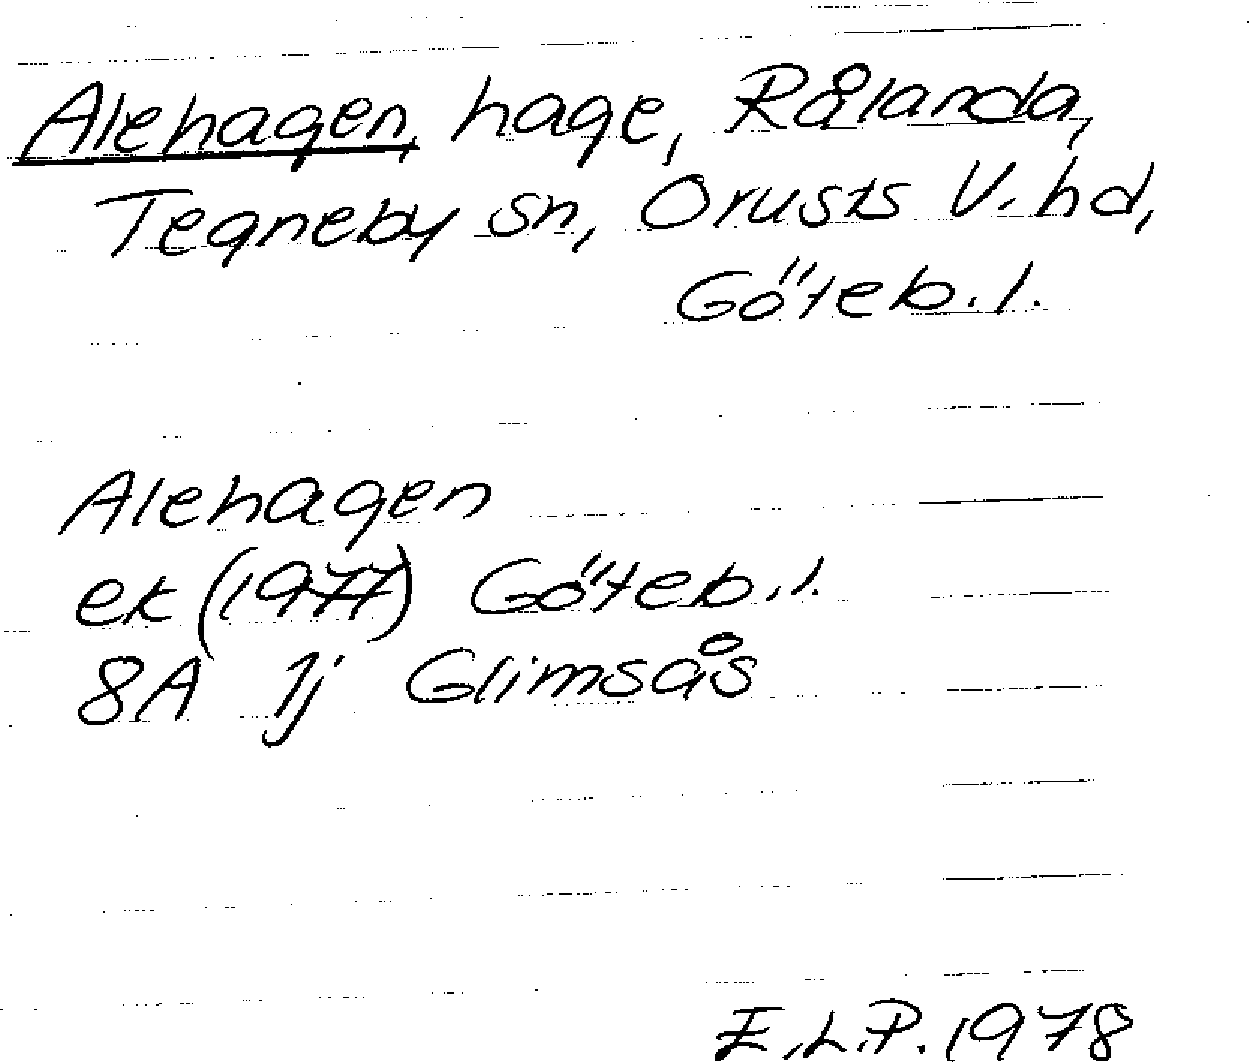 Alehagen, hage, Rålanda,
Tegneby sn, Orusts V. hd,
Göteb. l.
Alehagen
ek (1977) Göteb. l.
8A 1j Glimsås
E.L.P. 1978